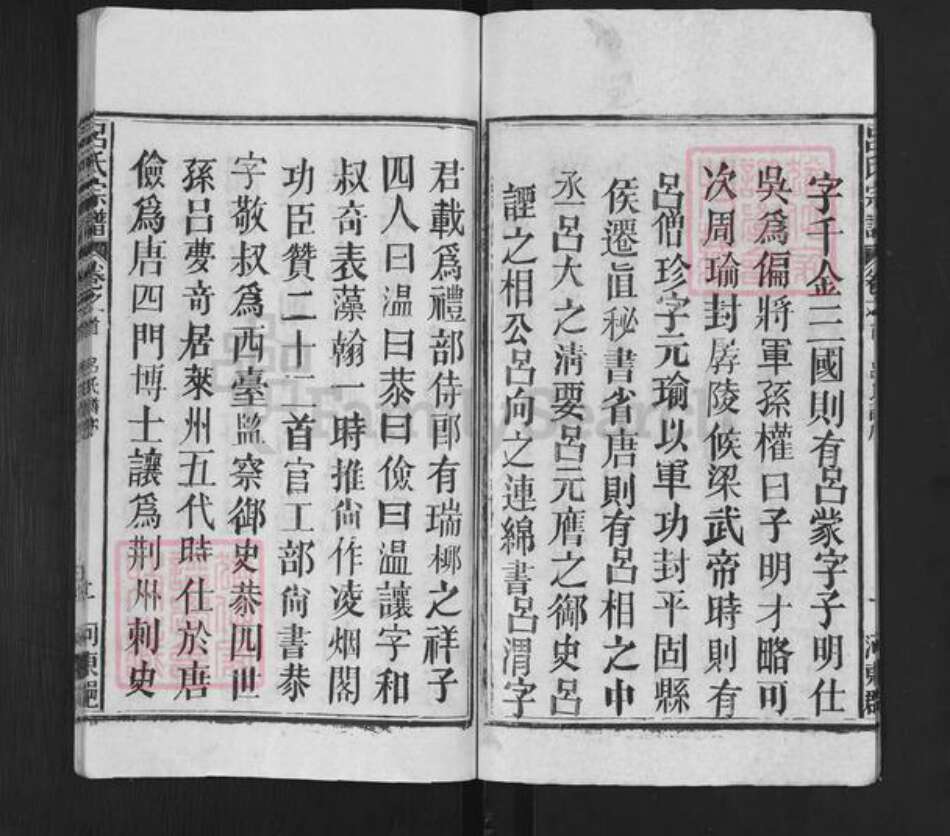 字千金三國則有呂蒙字子明仕
吳爲偏將軍孫權曰子明才略可
次周瑜封孱陵候梁武帝時則有
呂僧珍字元瑜以軍功封平固縣
侯遷眞秘書省唐則有呂相之中
丞呂大之淸要呂元膺之御史呂
諲之相公呂向之連綿書呂渭字
君載爲禮部侍郎有瑞柳之祥子
四人曰温曰恭曰儉曰温讓字和
叔奇表藻翰一時推尙作凌烟閣
功臣贊二十二首官工部尙書恭
字敬叔爲西臺監察御史恭四世
孫呂夢奇居萊州五代時仕於唐
儉爲唐四門博士讓爲荆州刺史
呂氏宗譜
卷之首
河東郡
FamilySearch